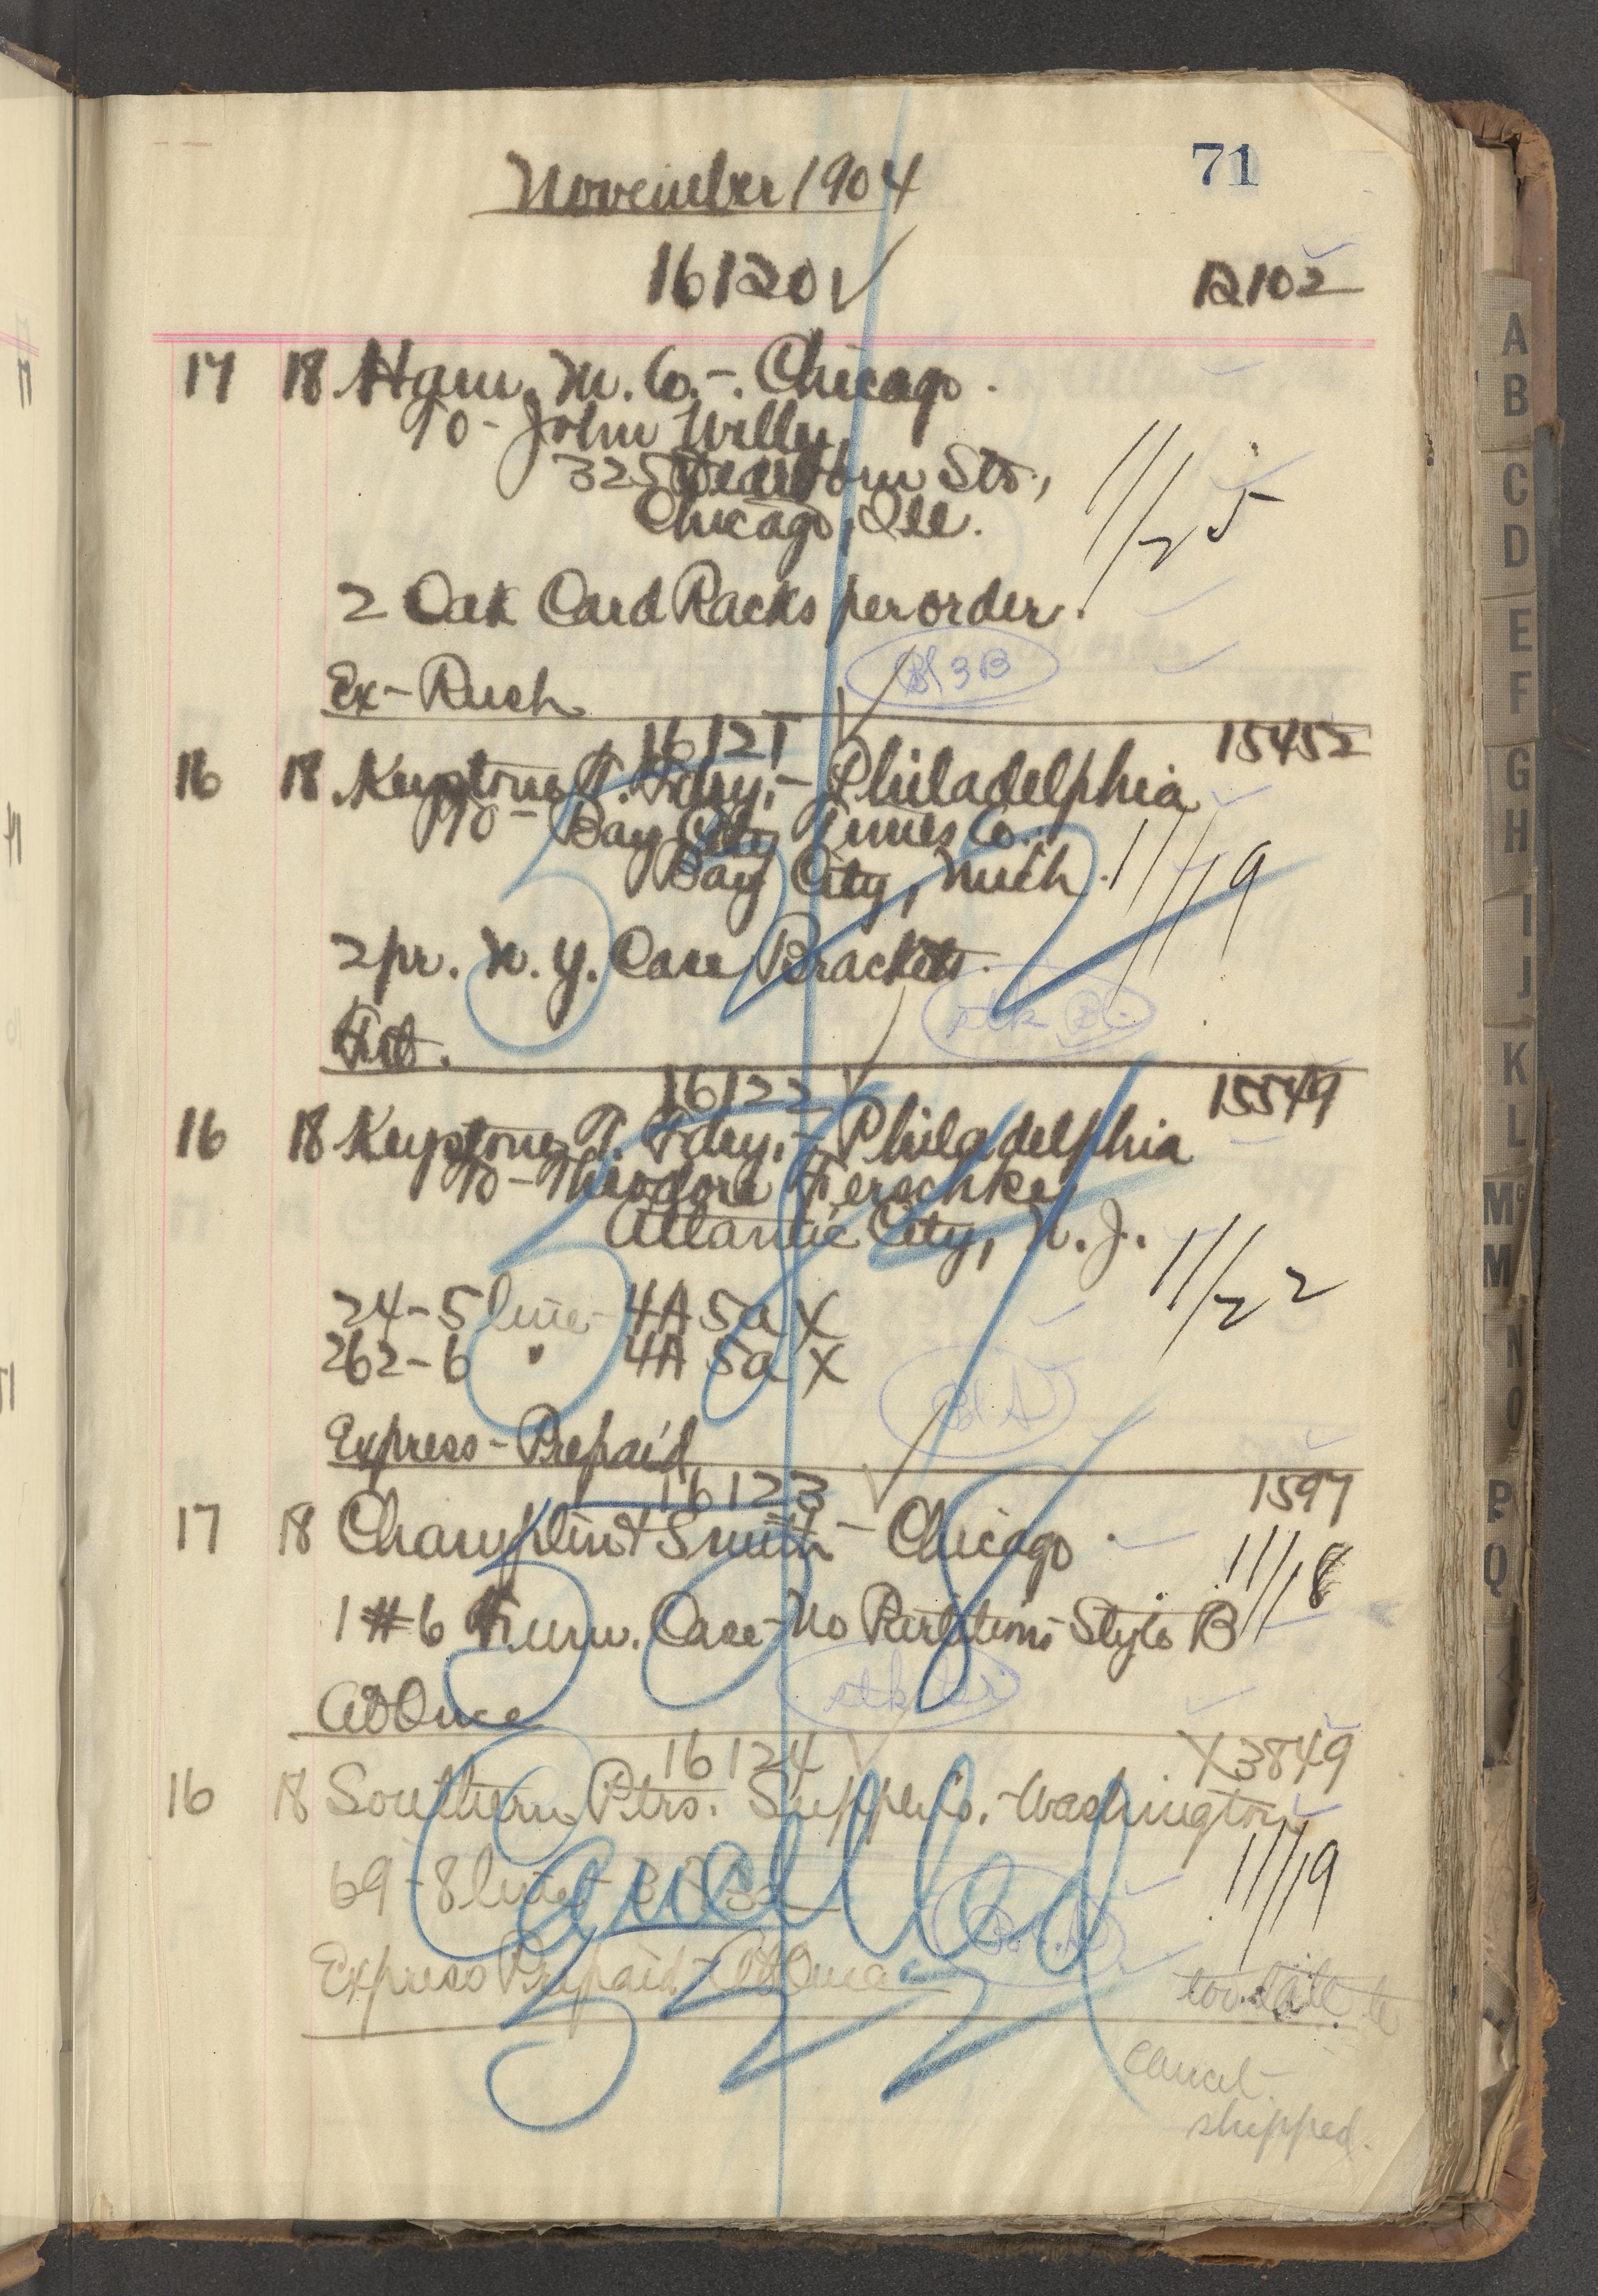 71
November 1904
16120 ✓ 12102
17 18 Ham. M. Co. - Chicago.
To - John Willy,
325 Dearborn St.,
Chicago, Ill.
11/25
2 Oak Card Racks per order.
Bl 3 B
Ex - Rush
16121 ✓ 15452
16 18 Keystone T. Fdry, - Philadelphia
To - Bay City Times Co.
Bay City, Mich.
11/19
2 pr. N. Y. Case Brackets.
stk
Frt.
16122 ✓ 15549
16 18 Keystone T. Fdry, - Philadelphia
To - Theodore
Atlantic City, N. J.
11/22
24 - 5 line 4A 5a X
262 - 6 " 4A 5a X
Express - Prepaid
16123 ✓ 1597
17 18 Champlin & Smith - Chicago.
11/18
1 #6 Furn. Case - No Partitions Style B
stk
At Once
16124 ✓ X3849
16 18 Southern Ptrs. Supply Co. - Washington
11/19
69 - 8 line
Cancelled
Express Prepaid - At Once
too late to
cancel -
shipped.